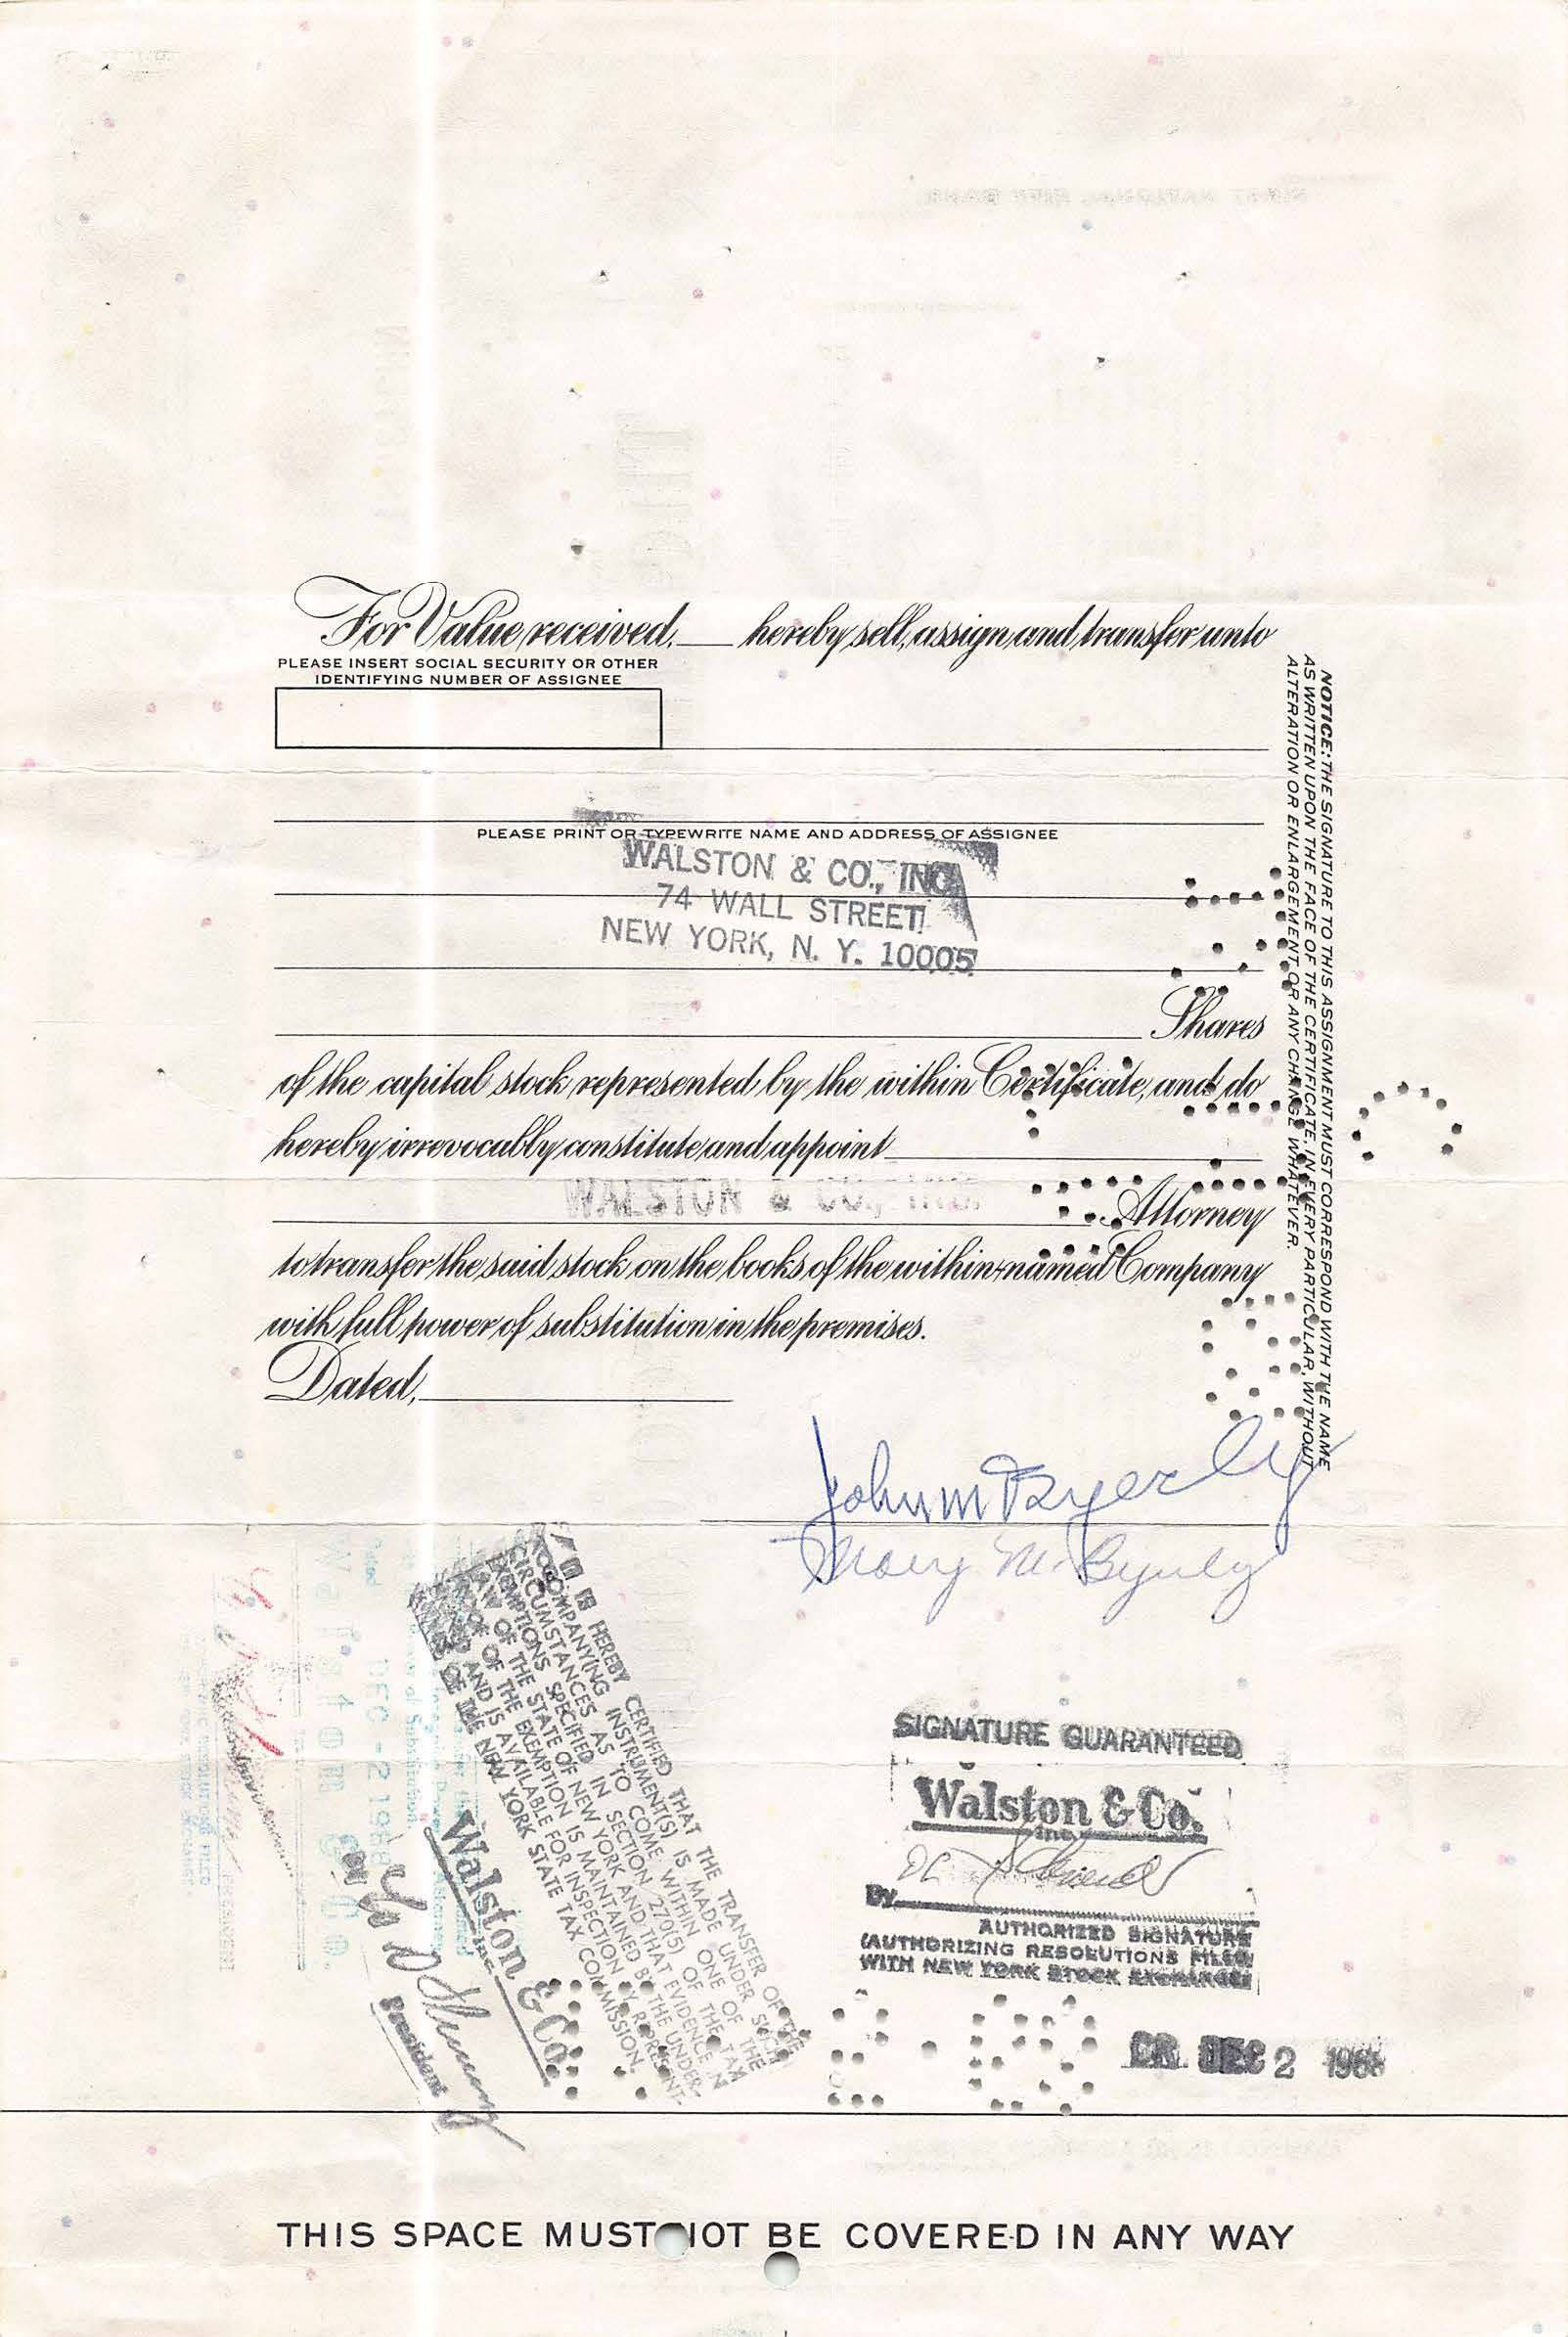 For Value received, hereby sell, assign and transfer unto
PLEASE INSERT SOCIAL SECURITY OR OTHER
IDENTIFYING NUMBER OF ASSIGNEE
PLEASE PRINT OR TYPEWRITE NAME AND ADDRESS OF ASSIGNEE
WALSTON & CO., INC.
74 WALL STREET
NEW YORK, N. Y. 10005
Shares
of the capital stock represented by the within Certificate, and do
hereby irrevocably constitute and appoint
WALSTON & CO., INC.
Attorney
to transfer the said stock on the books of the within-named Company
with full power of substitution in the premises.
Dated,
NOTICE: THE SIGNATURE TO THIS ASSIGNMENT MUST CORRESPOND WITH THE NAME
AS WRITTEN UPON THE FACE OF THE CERTIFICATE, IN EVERY PARTICULAR, WITHOUT
ALTERATION OR ENLARGEMENT OR ANY CHANGE WHATEVER.
John M Byerly
Mary M. Byerly
HEREBY CERTIFIED THAT THE TRANSFER OF THE
ACCOMPANYING INSTRUMENT(S) IS MADE UNDER SUCH
CIRCUMSTANCES AS TO COME WITHIN ONE OF THE
EXEMPTIONS SPECIFIED IN SECTION 270(5) OF THE TAX
LAW OF THE STATE OF NEW YORK AND THAT EVIDENCE IN
OF THE EXEMPTION IS MAINTAINED BY THE UNDER-
AND IS AVAILABLE FOR INSPECTION BY REPRESENT-
OF THE NEW YORK STATE TAX COMMISSION.
Walston & Co.
Inc.
President
DEC -2 1968
SIGNATURE GUARANTEED
Walston & Co.
Inc.
By
AUTHORIZED SIGNATURE
(AUTHORIZING RESOLUTIONS FILED
WITH NEW YORK STOCK EXCHANGE)
CR. DEC 2 1968
THIS SPACE MUST NOT BE COVERED IN ANY WAY